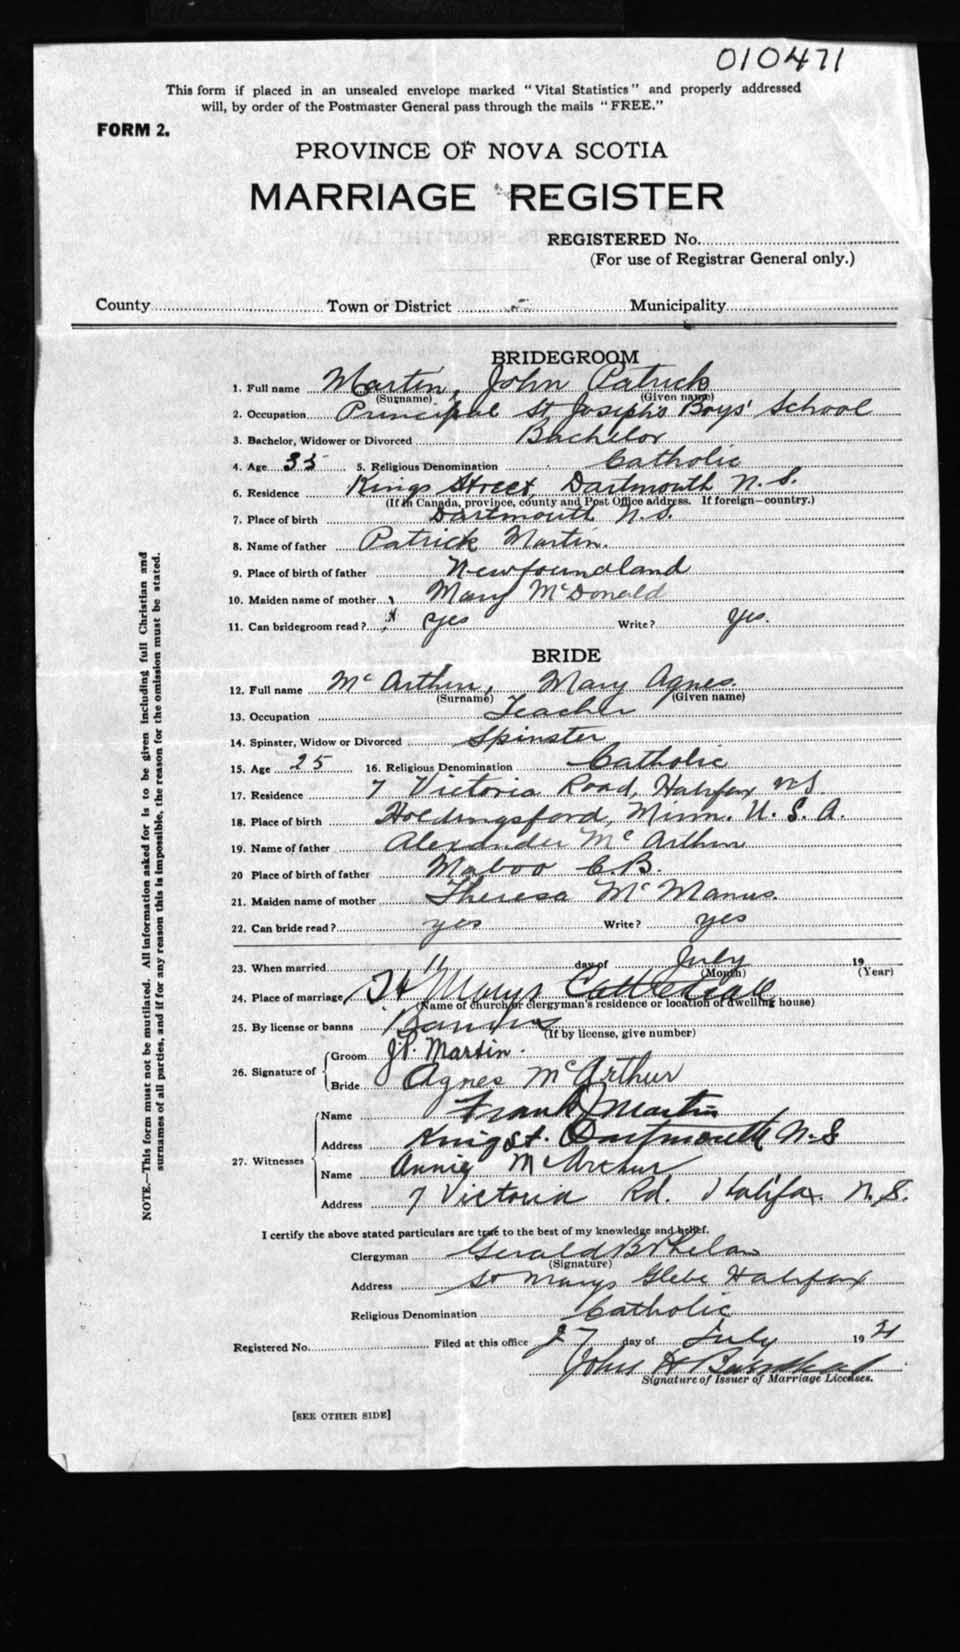 010471
This form if placed in an unsealed envelope marked "Vital Statistics" and properly addressed
will, by order of the Postmaster General pass through the mails "FREE."
FORM 2.
PROVINCE OF NOVA SCOTIA
MARRIAGE REGISTER
REGISTERED No.
(For use of Registrar General only.)
County Town or District Municipality
BRIDEGROOM
1. Full name Martin, John Patrick
(Surname) (Given name)
2. Occupation Principal St. Joseph's Boys' School
3. Bachelor, Widower or Divorced Bachelor
4. Age 35 5. Religious Denomination Catholic
6. Residence Kings Street, Dartmouth N.S.
(If in Canada, province, county and Post Office address. If foreign—country.)
7. Place of birth Dartmouth N.S.
8. Name of father Patrick Martin.
9. Place of birth of father Newfoundland
10. Maiden name of mother Mary McDonald
11. Can bridegroom read? yes Write? Yes.
BRIDE
12. Full name McArthur, Mary Agnes.
(Surname) (Given name)
13. Occupation Teacher
14. Spinster, Widow or Divorced Spinster
15. Age 25 16. Religious Denomination Catholic
17. Residence 7 Victoria Road, Halifax N.S.
18. Place of birth Holdingsford, Minn. U.S.A.
19. Name of father Alexander McArthur
20 Place of birth of father Maboo C.B.
21. Maiden name of mother Theresa McManus.
22. Can bride read? yes Write? yes
23. When married 11 day of July 19
(Month) (Year)
24. Place of marriage St Marys Cathedral
(Name of church or clergyman's residence or location of dwelling house)
25. By license or banns Banns
(If by license, give number)
26. Signature of Groom J.P. Martin.
Bride Agnes McArthur
27. Witnesses Name Frank J Martin
Address King St. Dartmouth N.S
Name Annie McArthur
Address 7 Victoria Rd. Halifax. N.S.
I certify the above stated particulars are true to the best of my knowledge and belief.
Clergyman Gerald B Phelan
(Signature)
Address St Marys Glebe Halifax
Religious Denomination Catholic
Registered No. Filed at this office 27 day of July 1921
John H
Signature of Issuer of Marriage Licenses.
[SEE OTHER SIDE]
NOTE.—This form must not be mutilated. All information asked for is to be given including full Christian and
surnames of all parties, and if for any reason this is impossible, the reason for the omission must be stated.